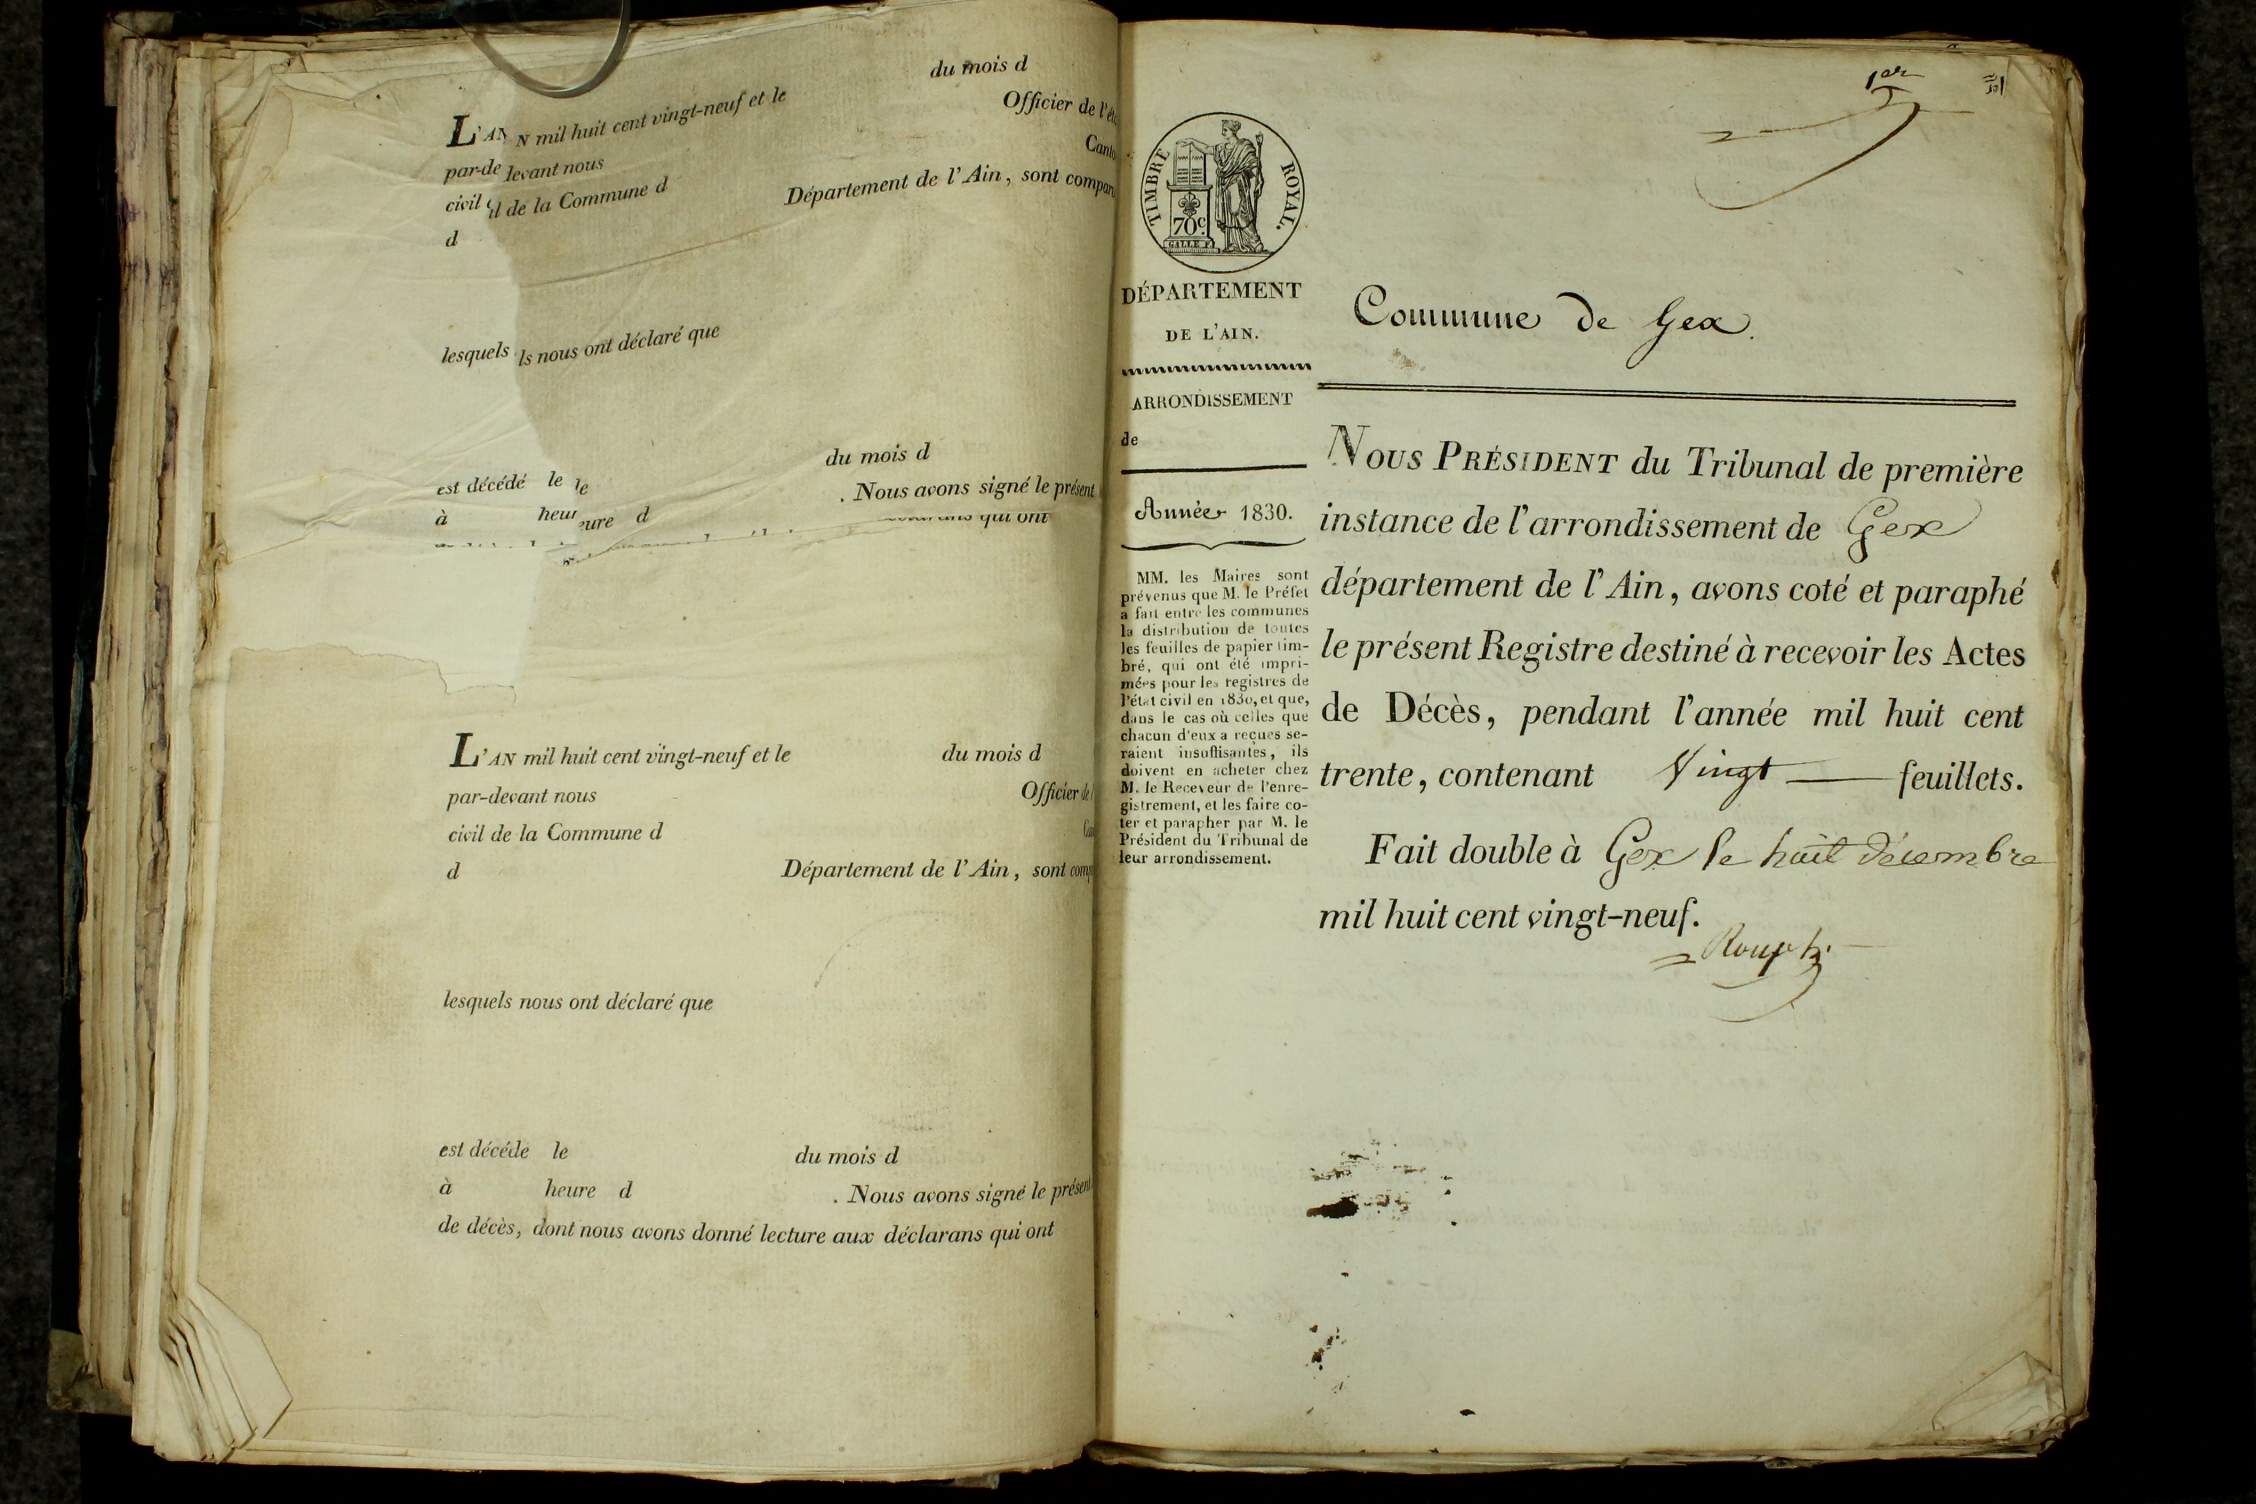 du mois d
L'AN N mil huit cent vingt-neuf et le
Officier de l'éta
par-de levant nous
Canto
civil il de la Commune d
Département de l'Ain, sont compar
d
lesquels ls nous ont déclaré que
du mois d
est décédé le le
. Nous avons signé le présent
à heur eure d
qui ont
L'AN mil huit cent vingt-neuf et le du mois d
par-devant nous Officier de l
civil de la Commune d Can
d Département de l'Ain, sont comp
lesquels nous ont déclaré que
est décédé le du mois d
à heure d . Nous avons signé le présent
de décès, dont nous avons donné lecture aux déclarans qui ont
1er
TIMBRE ROYAL.
70c
GALLE F.
DÉPARTEMENT
DE L'AIN.
ARRONDISSEMENT
de
Année 1830.
MM. les Maires sont
prévenus que M. le Préfet
a fait entre les communes
la distribution de toutes
les feuilles de papier tim-
bré, qui ont été impri-
mées pour les registres de
l'état civil en 1830, et que,
dans le cas où celles que
chacun d'eux a reçues se-
raient insuffisantes, ils
doivent en acheter chez
M. le Receveur de l'enre-
gistrement, et les faire co-
ter et parapher par M. le
Président du Tribunal de
leur arrondissement.
Commune de Gex.
NOUS PRÉSIDENT du Tribunal de première
instance de l'arrondissement de Gex
département de l'Ain, avons coté et paraphé
le présent Registre destiné à recevoir les Actes
de Décès, pendant l'année mil huit cent
trente, contenant Vingt feuillets.
Fait double à Gex le huit décembre
mil huit cent vingt-neuf.